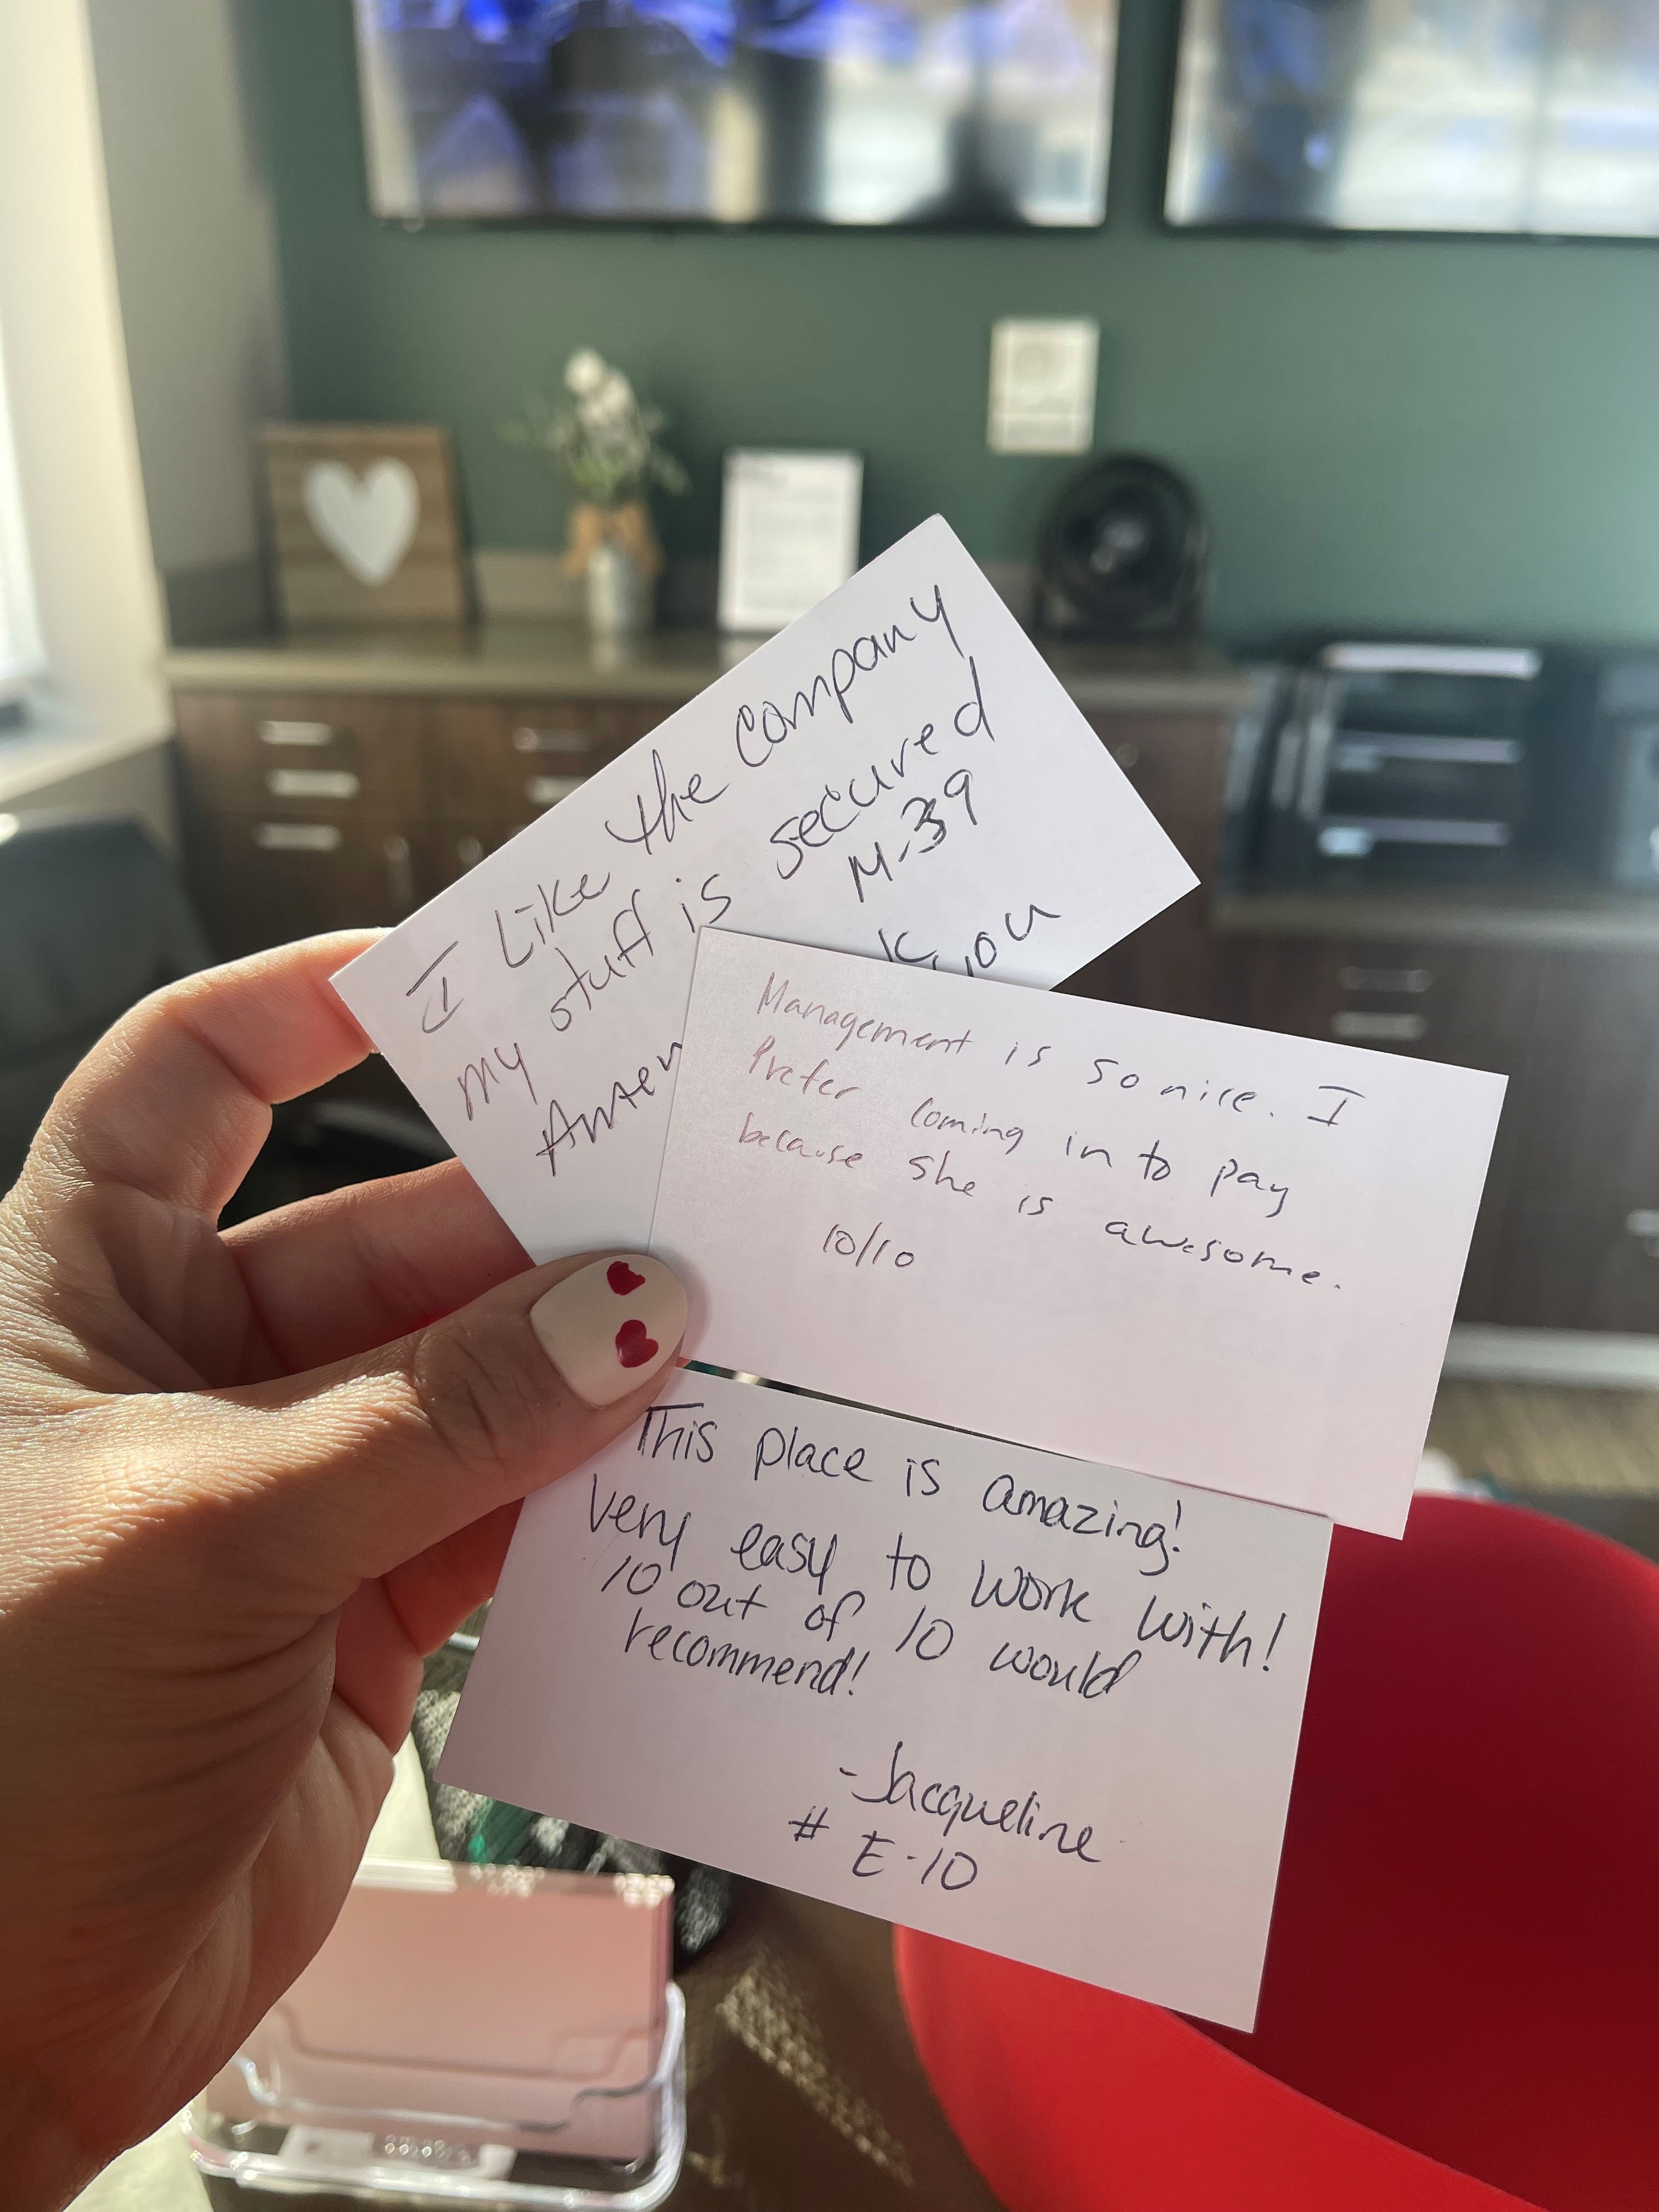 I Like the Company
my stuff is secured
M-39
you
Management is so nice. I
Prefer coming in to pay
because she is awesome.
10/10
This place is amazing!
Very easy to work with!
10 out of 10 would
recommend!
-Jacqueline
# E-10